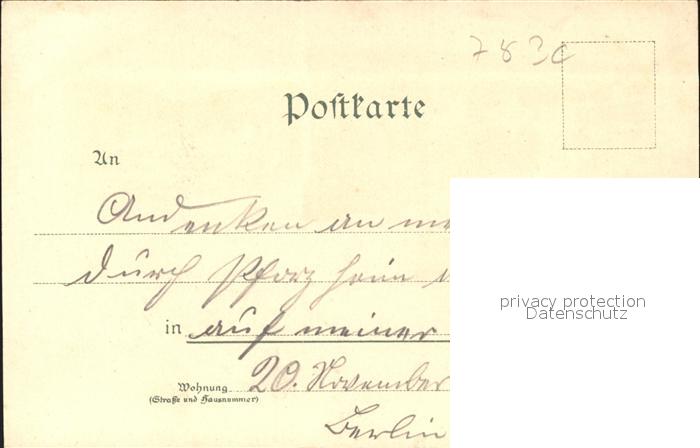 783c
Postkarte
An
Andenken an
durch Pforzheim
in auf meiner
Wohnung 20. November
(Straße und Hausnummer)
Berlin
privacy protection
Datenschutz